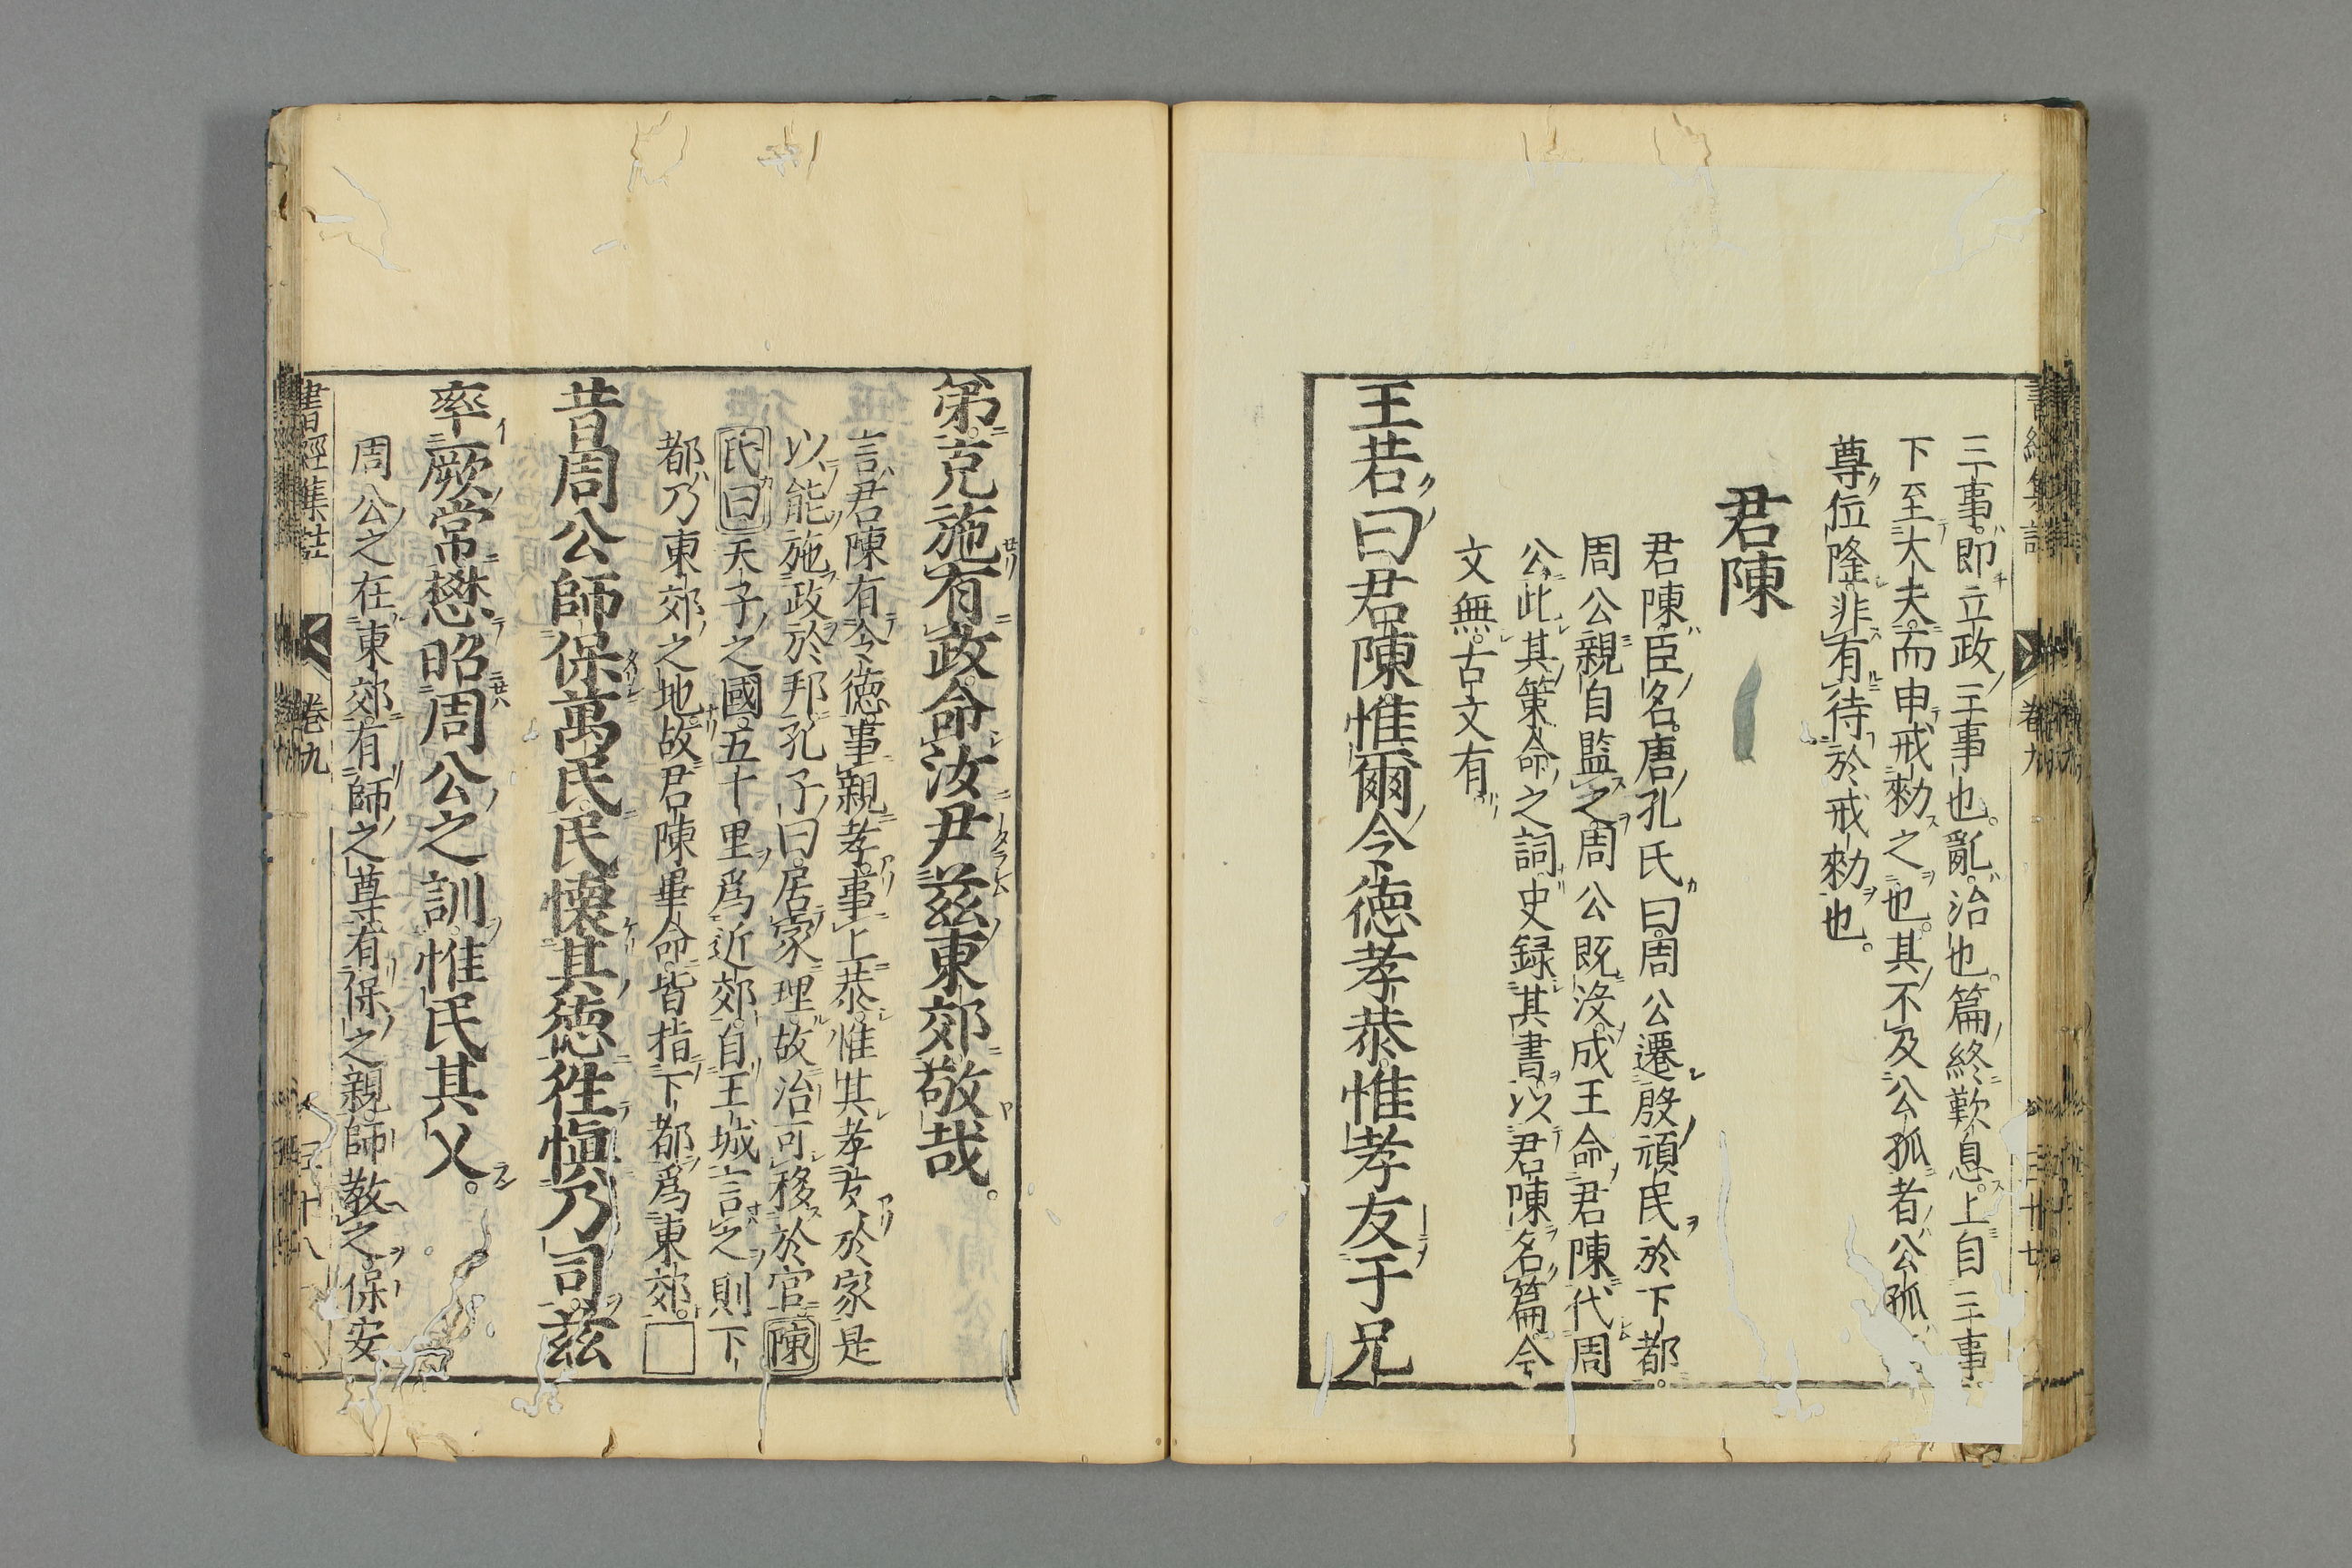 三事。即立政三事也。亂。治也。篇終歎息。上自三事。
下至大夫。而申戒勅之也。其不及公孤者。公孤
尊位隆。非有待於戒勅也。
君陳
君陳臣名。唐孔氏曰。周公遷殷頑民於下都。
周公親自監之。周公既没。成王命君陳代周
公。此其策命之詞。史録其書。以君陳名篇。今
文無。古文有。
王若曰。君陳。惟爾令德孝恭。惟孝友于兄
弟。克施有政。命汝尹茲東郊。敬哉。
言君陳有令德。事親孝。事上恭。惟其孝友於家。是
以能施政於邦。孔子曰。居家理。故治可移於官。陳
氏曰。天子之國。五十里爲近郊。自王城言之。則下
都乃東郊之地。故君陳畢命。皆指下都爲東郊。
昔周公師保萬民。民懷其德。徃愼乃司。茲
率厥常。懋昭周公之訓。惟民其乂。
周公之在東郊。有師之尊。有保之親。師教之。保安
書經集註 卷九 十八